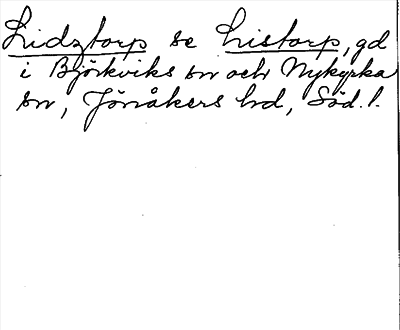 Lidztorp se Listorp, gd
i Björkviks sn och Nykyrka
sn, Jönåkers hd, Söd. l.